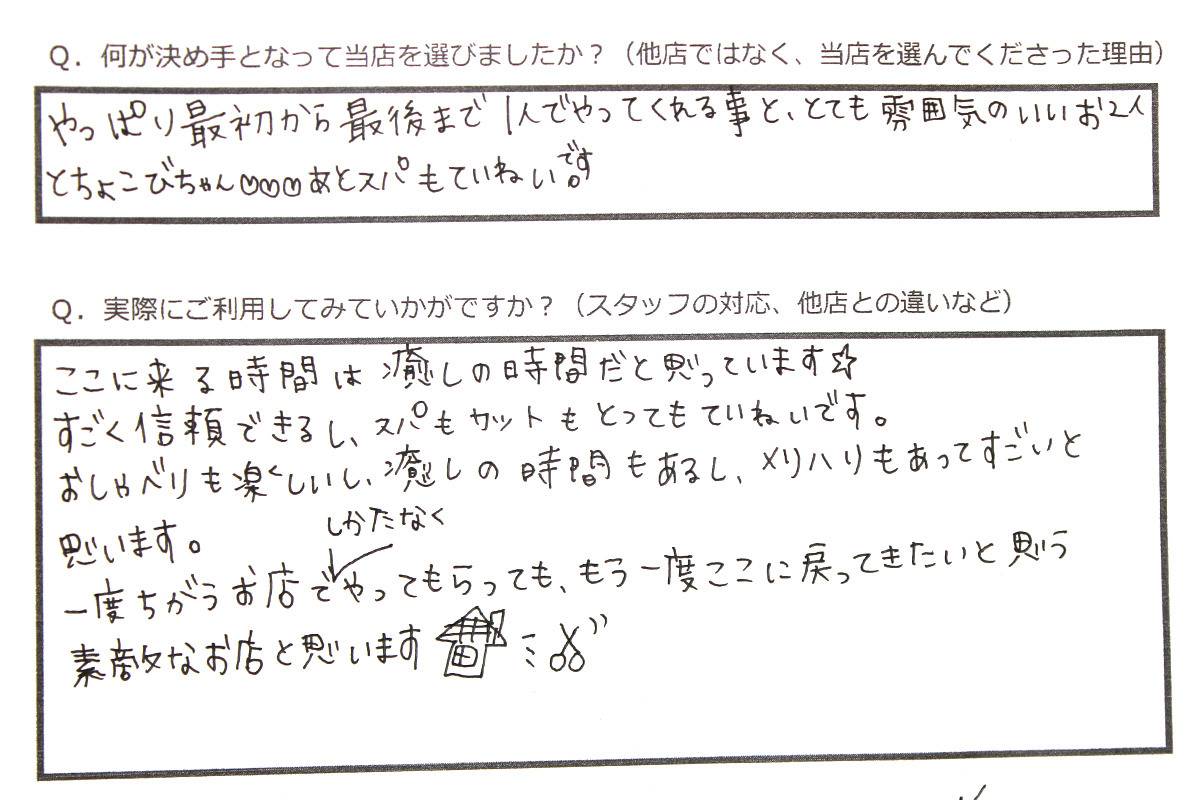 Q. 何が決め手となって当店を選びましたか？（他店ではなく、当店を選んでくださった理由）
やっぱり最初から最後まで1人でやってくれる事と、とても雰囲気のいいお2人
とちょこびちゃん♡♡♡あとスパもていねいです。
Q. 実際にご利用してみていかがですか？（スタッフの対応、他店との違いなど）
ここに来る時間は癒しの時間だと思っています☆
すごく信頼できるし、スパもカットもとってもていねいです。
おしゃべりも楽くしいし、癒しの時間もあるし、メリハリもあってすごいと
思います。
しかたなく
一度ちがうお店でやってもらっても、もう一度ここに戻ってきたいと思う
素敵なお店と思います